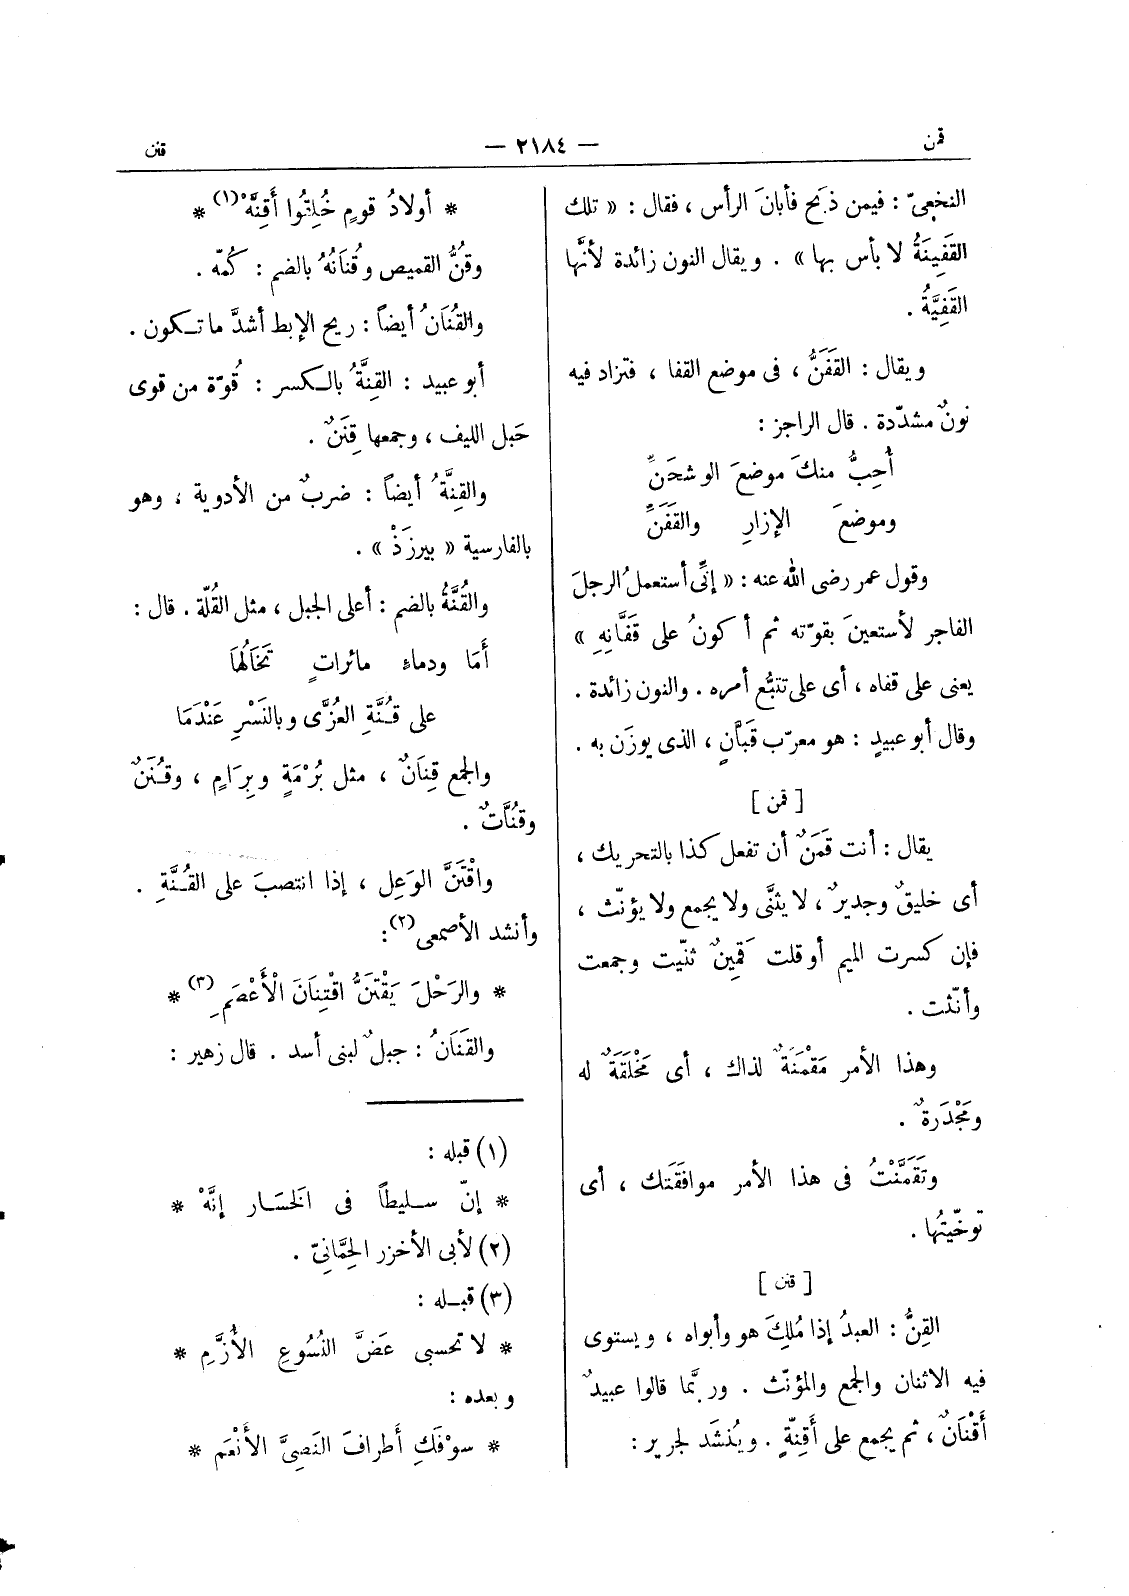 قمن
— ٢١٨٤ —
قنن
النخعىّ : فيمن ذبح فأبانَ الرأس ، فقال : « تلك
القَفِينَةُ لا بأس بها » . ويقال النون زائدة لأنَّها
القَفِيَّةُ .
ويقال : القَفَنُّ ، فى موضع القفا ، فتزاد فيه
نونٌ مشدّدة . قال الراجز :
أُحِبُّ منكَ موضعَ الوشحَنِّ
وموضعَ الإزارِ والقَفَنِّ
وقول عمر رضى الله عنه : « إنِّى أستعملُ الرجلَ
الفاجر لأستعينَ بقوّته ثم أكونُ على قَفَّانِهِ »
يعنى على قفاه ، أى على تتبُّع أمره . والنون زائدة .
وقال أبو عبيدٍ : هو معرّب قَبَّانٍ ، الذى يوزَن به .
[ قمن ]
يقال : أنت قَمَنٌ أن تفعل كذا بالتحريك ،
أى خليقٌ وجديرٌ ، لا يثنَّى ولا يجمع ولا يؤنّث ،
فإن كسرت الميم أوقلت قَمِينٌ ثنّيت وجمعت
وأنّثت .
وهذا الأمر مَقْمَنَةٌ لذاك ، أى مَخْلَقَةٌ له
ومَجْدَرةٌ .
وتَقَمَّنْتُ فى هذا الأمر موافَقَتك ، أى
توخّيتُها .
[ قنن ]
القِنُّ : العبدُ إذا مُلِكَ هو وأبواه ، ويستوى
فيه الاثنان والجمع والمؤنّث . وربَّما قالوا عبيدٌ
أَقْنَانٌ ، ثم يجمع على أَقِنَّةٍ . ويُنشَد لجرير :
* أولادُ قومٍ خُلِقُوا أَقِنَّهْ (١) *
وقُنُّ القميص وقُنَانُهُ بالضم : كُمّه .
والقُنَانُ أيضاً : ريح الإبط أشدَّ ما تكون .
أبو عبيد : القِنَّةُ بالكسر : قُوّة من قوى
حَبل الليف ، وجمعها قِنَنٌ .
والقِنَّةُ أيضاً : ضربٌ من الأدوية ، وهو
بالفارسية « بيرزَذْ » .
والقُنَّةُ بالضم : أعلى الجبل ، مثل القُلّة . قال :
أَمَا ودماءِ مائراتٍ تَخَالُهَا
على قُنَّةِ العُزَّى وبالنَسْرِ عَنْدَمَا
والجمع قِنَانٌ ، مثل بُرْمَةٍ وبِرَامٍ ، وقُنَنٌ
وقُنَّاتٌ .
واقْتَنَّ الوَعِل ، إذا انتصبَ على القُنَّةِ .
وأنشد الأصمعى (٢) :
* والرَحْلَ يَقْتَنُّ اقْتِنَانَ الْأَعْصَمِ (٣) *
والقَنَانُ : جبلٌ لبنى أسد . قال زهير :
(١) قبله :
* إنّ سليطاً فى الخَسَار إنَّهْ *
(٢) لأبى الأخزر الحِمَّانىّ .
(٣) قبله :
* لا تحسبى عَضَّ النُسُوعِ الأُزَّمِ *
وبعده :
* سوْفَكِ أطرافَ النَصِىَّ الأَنْعَم *